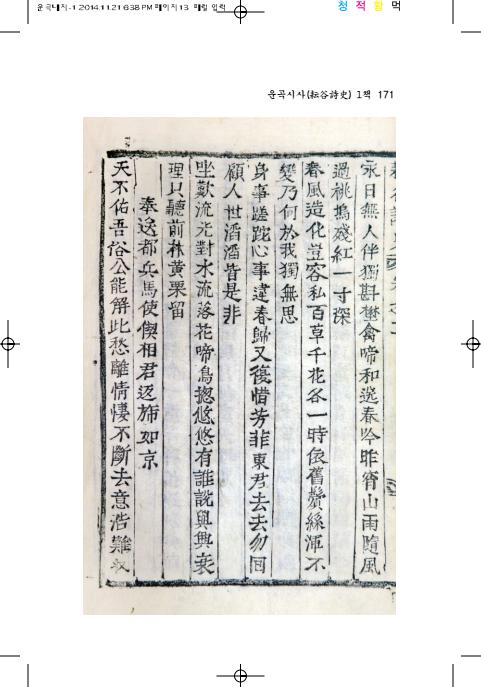 운곡내지-1 2014.11.21 6:38 PM 페이지13 메탈 입력
청 적 황 먹
운곡시사(耘谷詩史) 1책 171
永日無人伴獨斟樹禽啼和送春吟昨宵山雨隨風
過桃塢殘紅一寸深
春風造化豈容私百草千花各一時依舊鬢絲渾不
變乃何於我獨無思
身事蹉跎心事違春歸又復惜芳菲東君去去勿回
顧人世滔滔皆是非
坐歎流光對水流落花啼鳥揔悠悠有誰說與興衰
理只聽前林黃栗留
奉送都兵馬使偰相君返旆如京
天不佑吾俗公能解此愁離情悽不斷去意浩難収